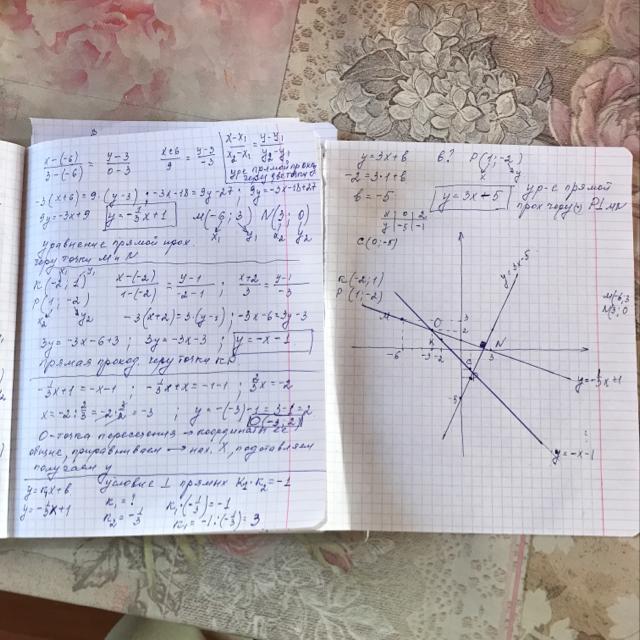 x-(-6)/3-(-6) = y-3/0-3   x+6/9 = y-3/-3   x-x₁/x₂-x₁ = y-y₁/y₂-y₁
ур-е прямой проход через 2 точки
-3(x+6)=9·(y-3) ; -3x-18=9y-27 ; 9y=-3x-18+27
9y=-3x+9   y=-1/3x+1   M(-6;3)   N(3;0)
x₁ y₁ x₂ y₂
уравнение прямой прох.
через точки M и N
K(-2;1)   x-(-2)/1-(-2) = y-1/-2-1 ;   x+2/3 = y-1/-3
P(1;-2)
x₂ y₂   -3(x+2)=3·(y-1) ; -3x-6=3y-3
3y=-3x-6+3 ; 3y=-3x-3 ; y=-x-1
Прямая проход через точки
-1/3x+1=-x-1 ; -1/3x+x=-1-1 ; 2/3x=-2
x=-2:2/3=-2·3/2=-3 ; y=-(-3)-1=3-1=2
O(-3;2)
O-точка пересечения → координаты
общие, приравниваем → нах. x, подставляем
получаем y
y=kx+b   условие ⊥ прямых K₁·K₂=-1
y=-1/3x+1   K₁=?   K₁·(-1/3)=-1
K₂=-1/3   K₁=-1:(-1/3)=3
y=3x+b   b?   P(1;-2)
x y
-2=3·1+b
b=-5   y=3x-5   ур-е прямой
x 0 2
y -5 -1
C(0;-5)
K(-2;1)
P(1;-2)
y=3x-5
M(-6;3
N(3;0
M
O
K
N
-6
-3
-2
3
3
2
P
y=-1/3x+1
y=-x-1